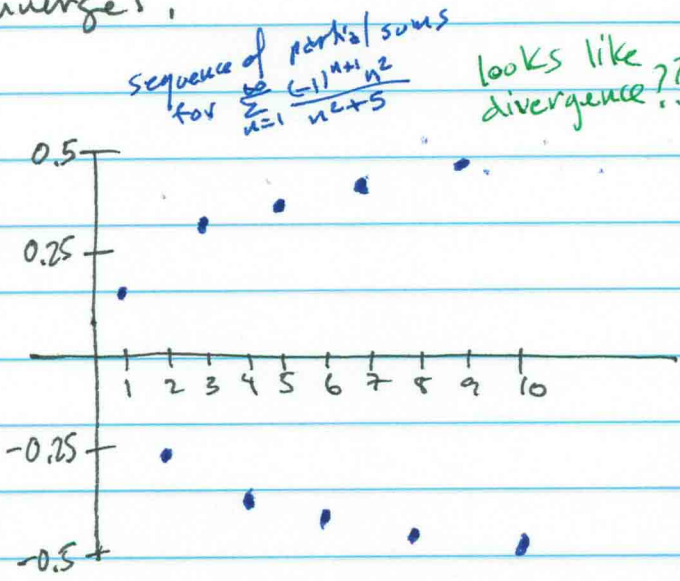 sequence of partial sums
for ∞ Σ n=1 (-1)^{n+1} n^2 / n^2+5
looks like
divergence??
0.5
0.25
1 2 3 4 5 6 7 8 9 10
-0.25
-0.5